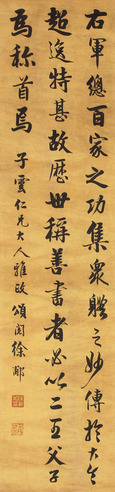 右軍總百家之功集衆體之妙傳於大令
超逸特甚故歷世稱善書者必以二王父子
爲称首焉
子雲仁兄大人雅政 頌閣徐郙